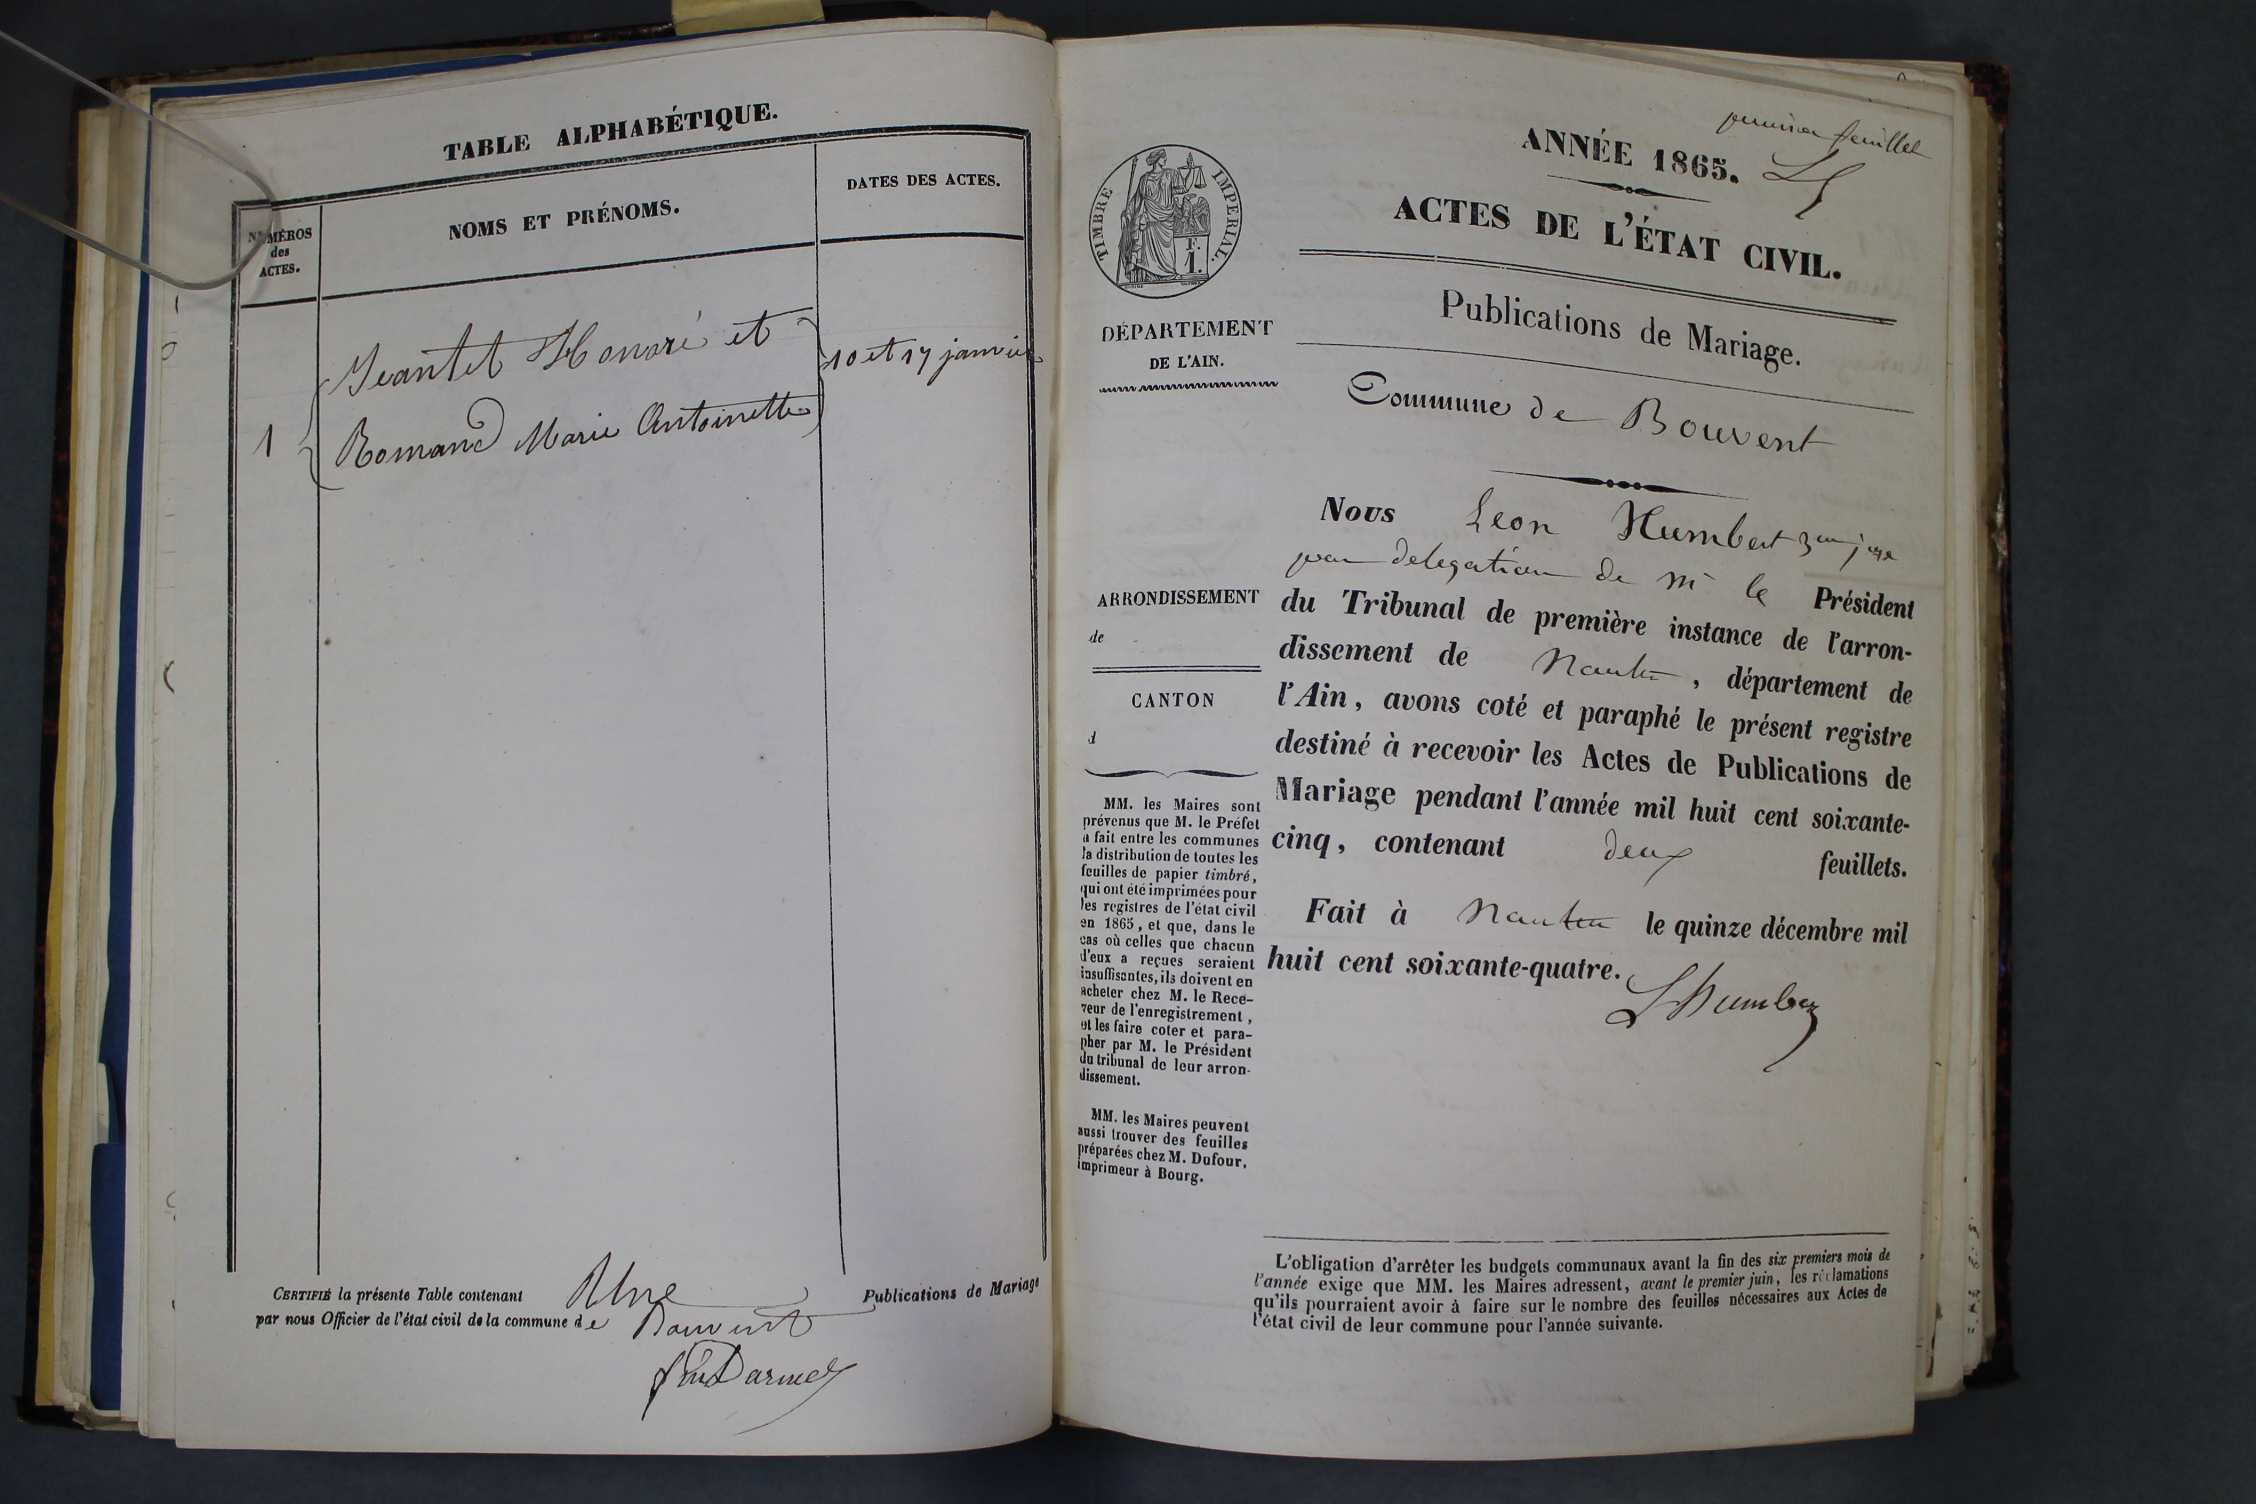 TABLE ALPHABÉTIQUE.
NUMÉROS
des
ACTES.
NOMS ET PRÉNOMS.
DATES DES ACTES.
Jeantet Honoré et
10 et 17 janvier
1
Romand Marie Antoinette
CERTIFIÉ la présente Table contenant Une Publications de Mariage
par nous Officier de l'état civil de la commune de Bouvent
premier feuillet
ANNÉE 1865.
ACTES DE L'ÉTAT CIVIL.
Publications de Mariage.
Commune de Bouvent
TIMBRE IMPERIAL.
F.
1.
DÉPARTEMENT
DE L'AIN.
ARRONDISSEMENT
de
CANTON
d
MM. les Maires sont
prévenus que M. le Préfet
a fait entre les communes
la distribution de toutes les
feuilles de papier timbré,
qui ont été imprimées pour
les registres de l'état civil
en 1865, et que, dans le
cas où celles que chacun
d'eux a reçues seraient
insuffisantes, ils doivent en
acheter chez M. le Rece-
veur de l'enregistrement,
et les faire coter et para-
pher par M. le Président
du tribunal de leur arron-
dissement.
MM. les Maires peuvent
aussi trouver des feuilles
préparées chez M. Dufour,
imprimeur à Bourg.
Nous Leon Humbert juge
par delegation de Mr le Président
du Tribunal de première instance de l'arron-
dissement de Nantua, département de
l'Ain, avons coté et paraphé le présent registre
destiné à recevoir les Actes de Publications de
Mariage pendant l'année mil huit cent soixante-
cinq, contenant deux feuillets.
Fait à Nantua le quinze décembre mil
huit cent soixante-quatre.
LHumbert
L'obligation d'arrêter les budgets communaux avant la fin des six premiers mois de
l'année exige que MM. les Maires adressent, avant le premier juin, les réclamations
qu'ils pourraient avoir à faire sur le nombre des feuilles nécessaires aux Actes de
l'état civil de leur commune pour l'année suivante.